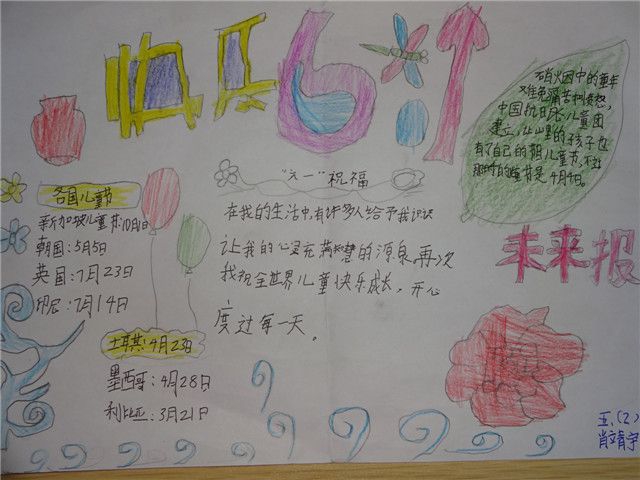 快乐6·1
硝烟中的童年
难免痛苦和愤怒。
中国抗日Js儿童团
建立，让山里的孩子也
有了自己的节日儿童节，不过
那时的儿童节是4月4日。
各国儿童节
新加坡儿童节:10月1日
朝国:5月5日
英国:7月23日
印尼:7月14日
土耳其:4月23日
墨西哥:4月28日
利比亚:3月21日
"六一"祝福
在我的生活中,有许多人给予我识识
让我的心灵充满智慧的源泉,再次
我祝全世界儿童快乐成长，开心
度过每一天。
未来报
五.(2)
肖文育宇